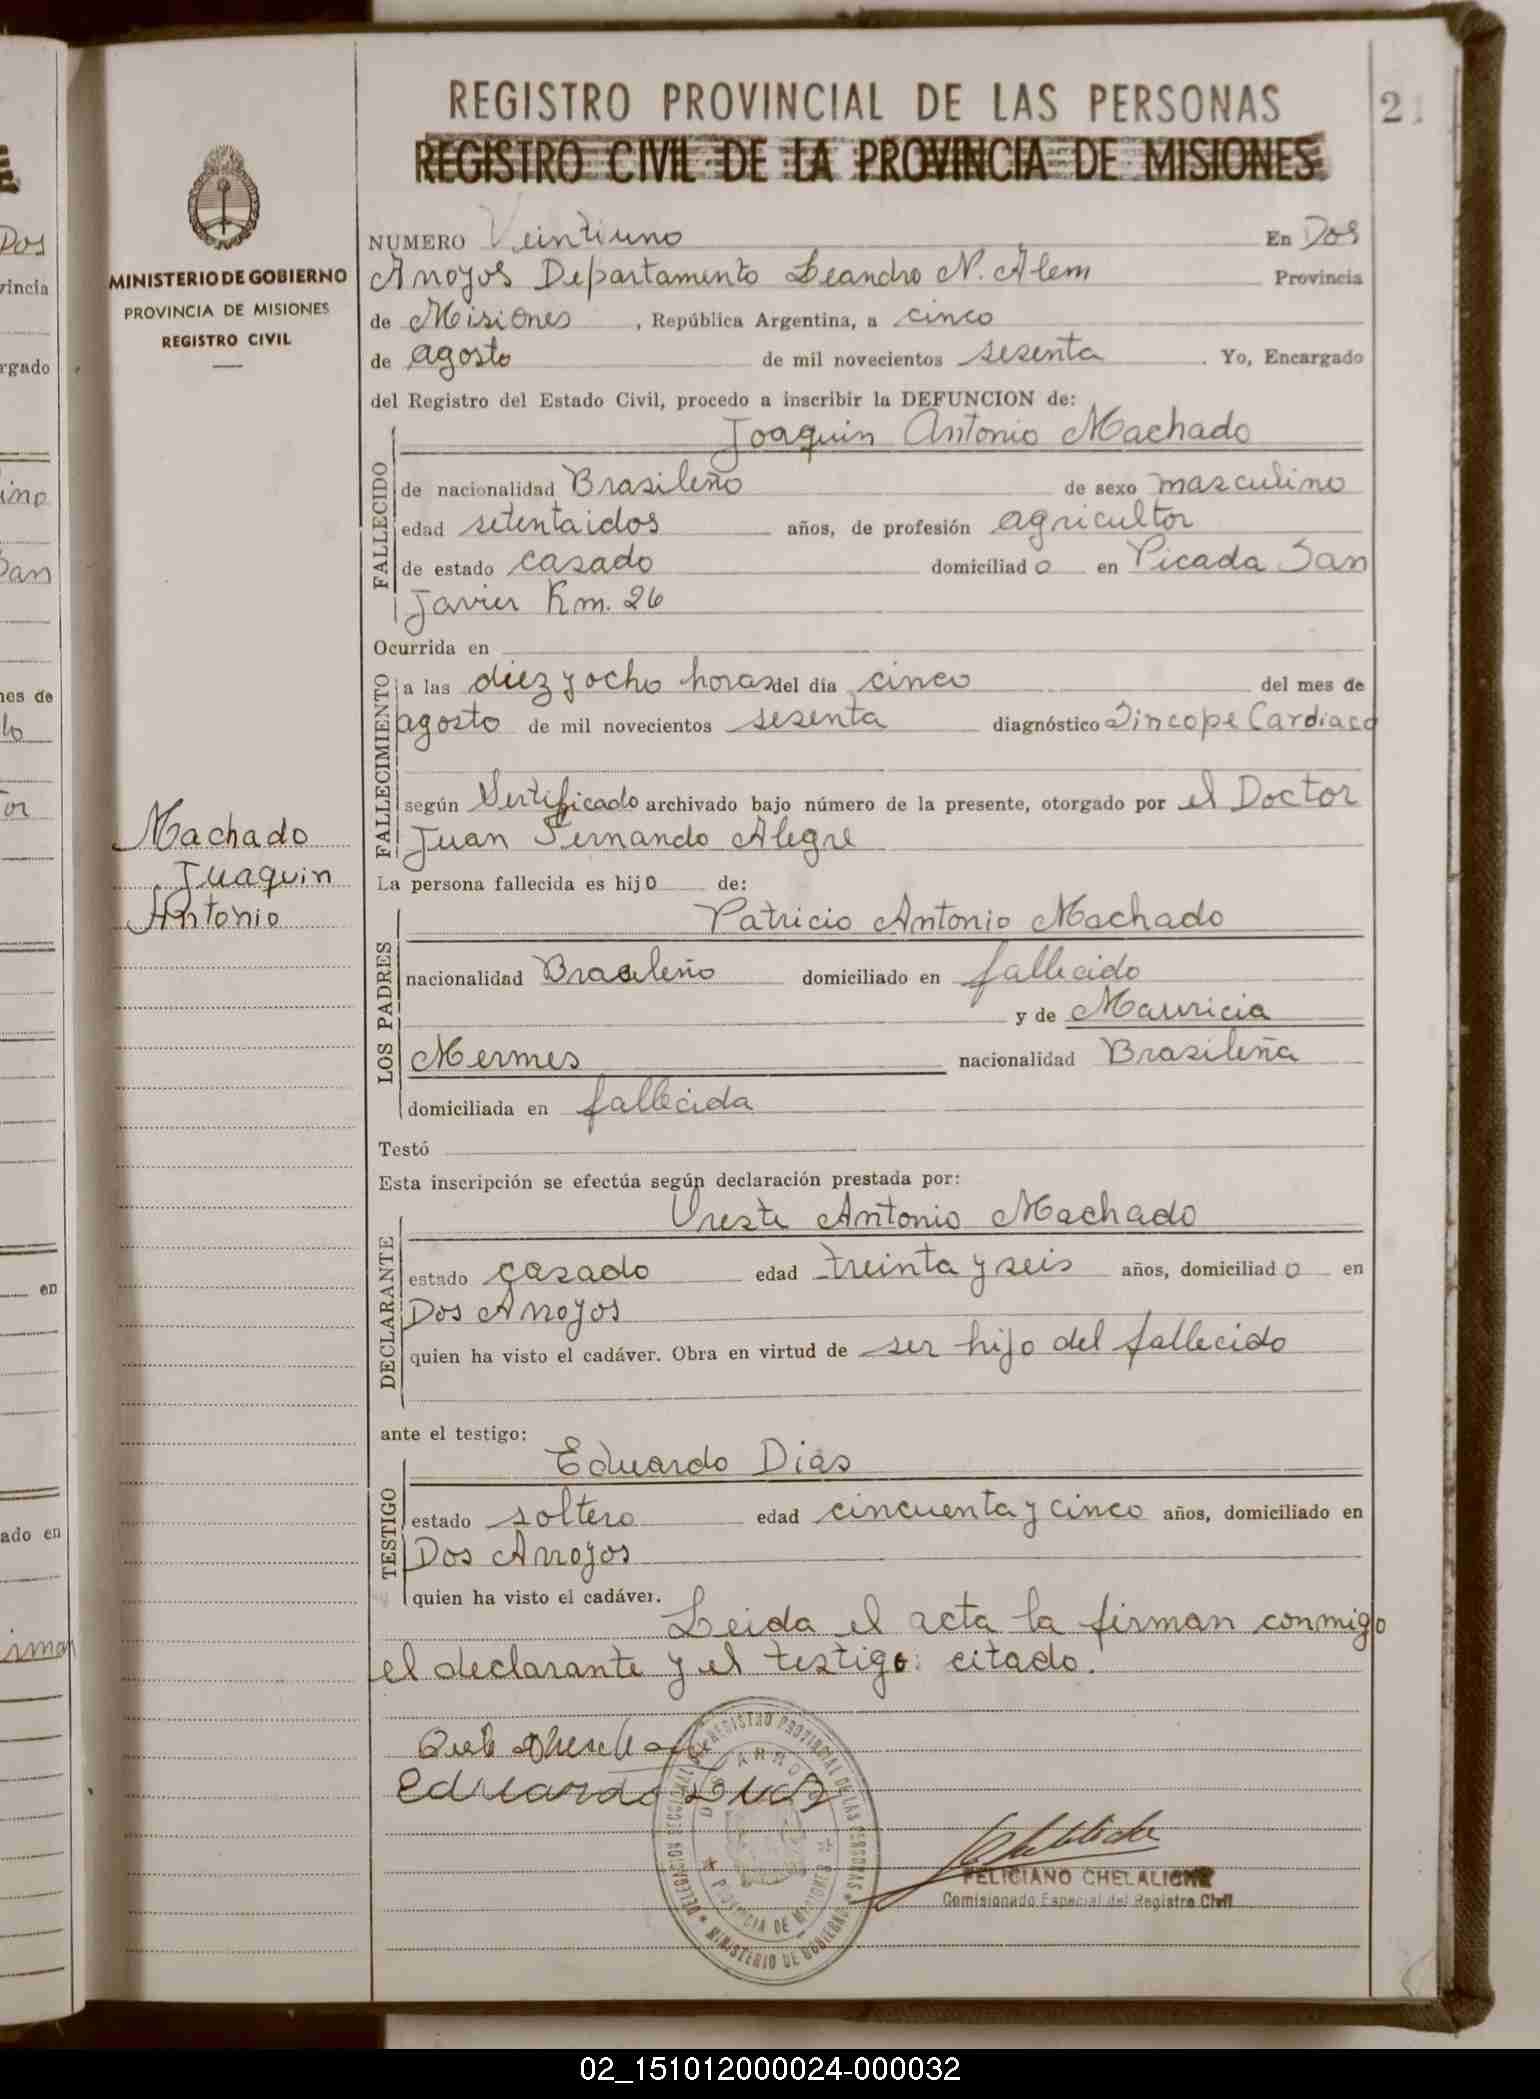 REGISTRO PROVINCIAL DE LAS PERSONAS
REGISTRO CIVIL DE LA PROVINCIA DE MISIONES
MINISTERIO DE GOBIERNO
PROVINCIA DE MISIONES
REGISTRO CIVIL
NUMERO Veintiuno En Dos
Arroyos Departamento Leandro N. Alem Provincia
de Misiones, República Argentina, a cinco
de agosto de mil novecientos sesenta. Yo, Encargado
del Registro del Estado Civil, procedo a inscribir la DEFUNCION de:
Joaquin Antonio Machado
FALLECIDO
de nacionalidad Brasileño de sexo masculino
edad setentaidos años, de profesión agricultor
de estado casado domiciliado en Picada San
Javier Km. 26
Ocurrida en
FALLECIMIENTO
a las diez y ocho horas del día cinco del mes de
agosto de mil novecientos sesenta diagnóstico Sincope Cardiaco
según Sertificado archivado bajo número de la presente, otorgado por el Doctor
Juan Fernando Alegre
Machado
Juaquin
Antonio
La persona fallecida es hijo de:
LOS PADRES
Patricio Antonio Machado
nacionalidad Brasileño domiciliado en fallecido
y de Mauricia
Mermes nacionalidad Brasileña
domiciliada en fallecida
Testó
Esta inscripción se efectúa según declaración prestada por:
DECLARANTE
Antonio Machado
estado casado edad treinta y seis años, domiciliado en
Dos Arroyos
quien ha visto el cadáver. Obra en virtud de ser hijo del fallecido
ante el testigo:
TESTIGO
Eduardo Dias
estado soltero edad cincuenta y cinco años, domiciliado en
Dos Arroyos
quien ha visto el cadáver.
Leida el acta la firman conmigo
el declarante y el testigo: citado.
Eduardo
REGISTRO PROVINCIAL DE LAS PERSONAS
PROVINCIA DE MISIONES
MINISTERIO DE GOBIERNO
FELICIANO CHELALICHE
Comisionado Especial del Registro Civil
02_151012000024-000032